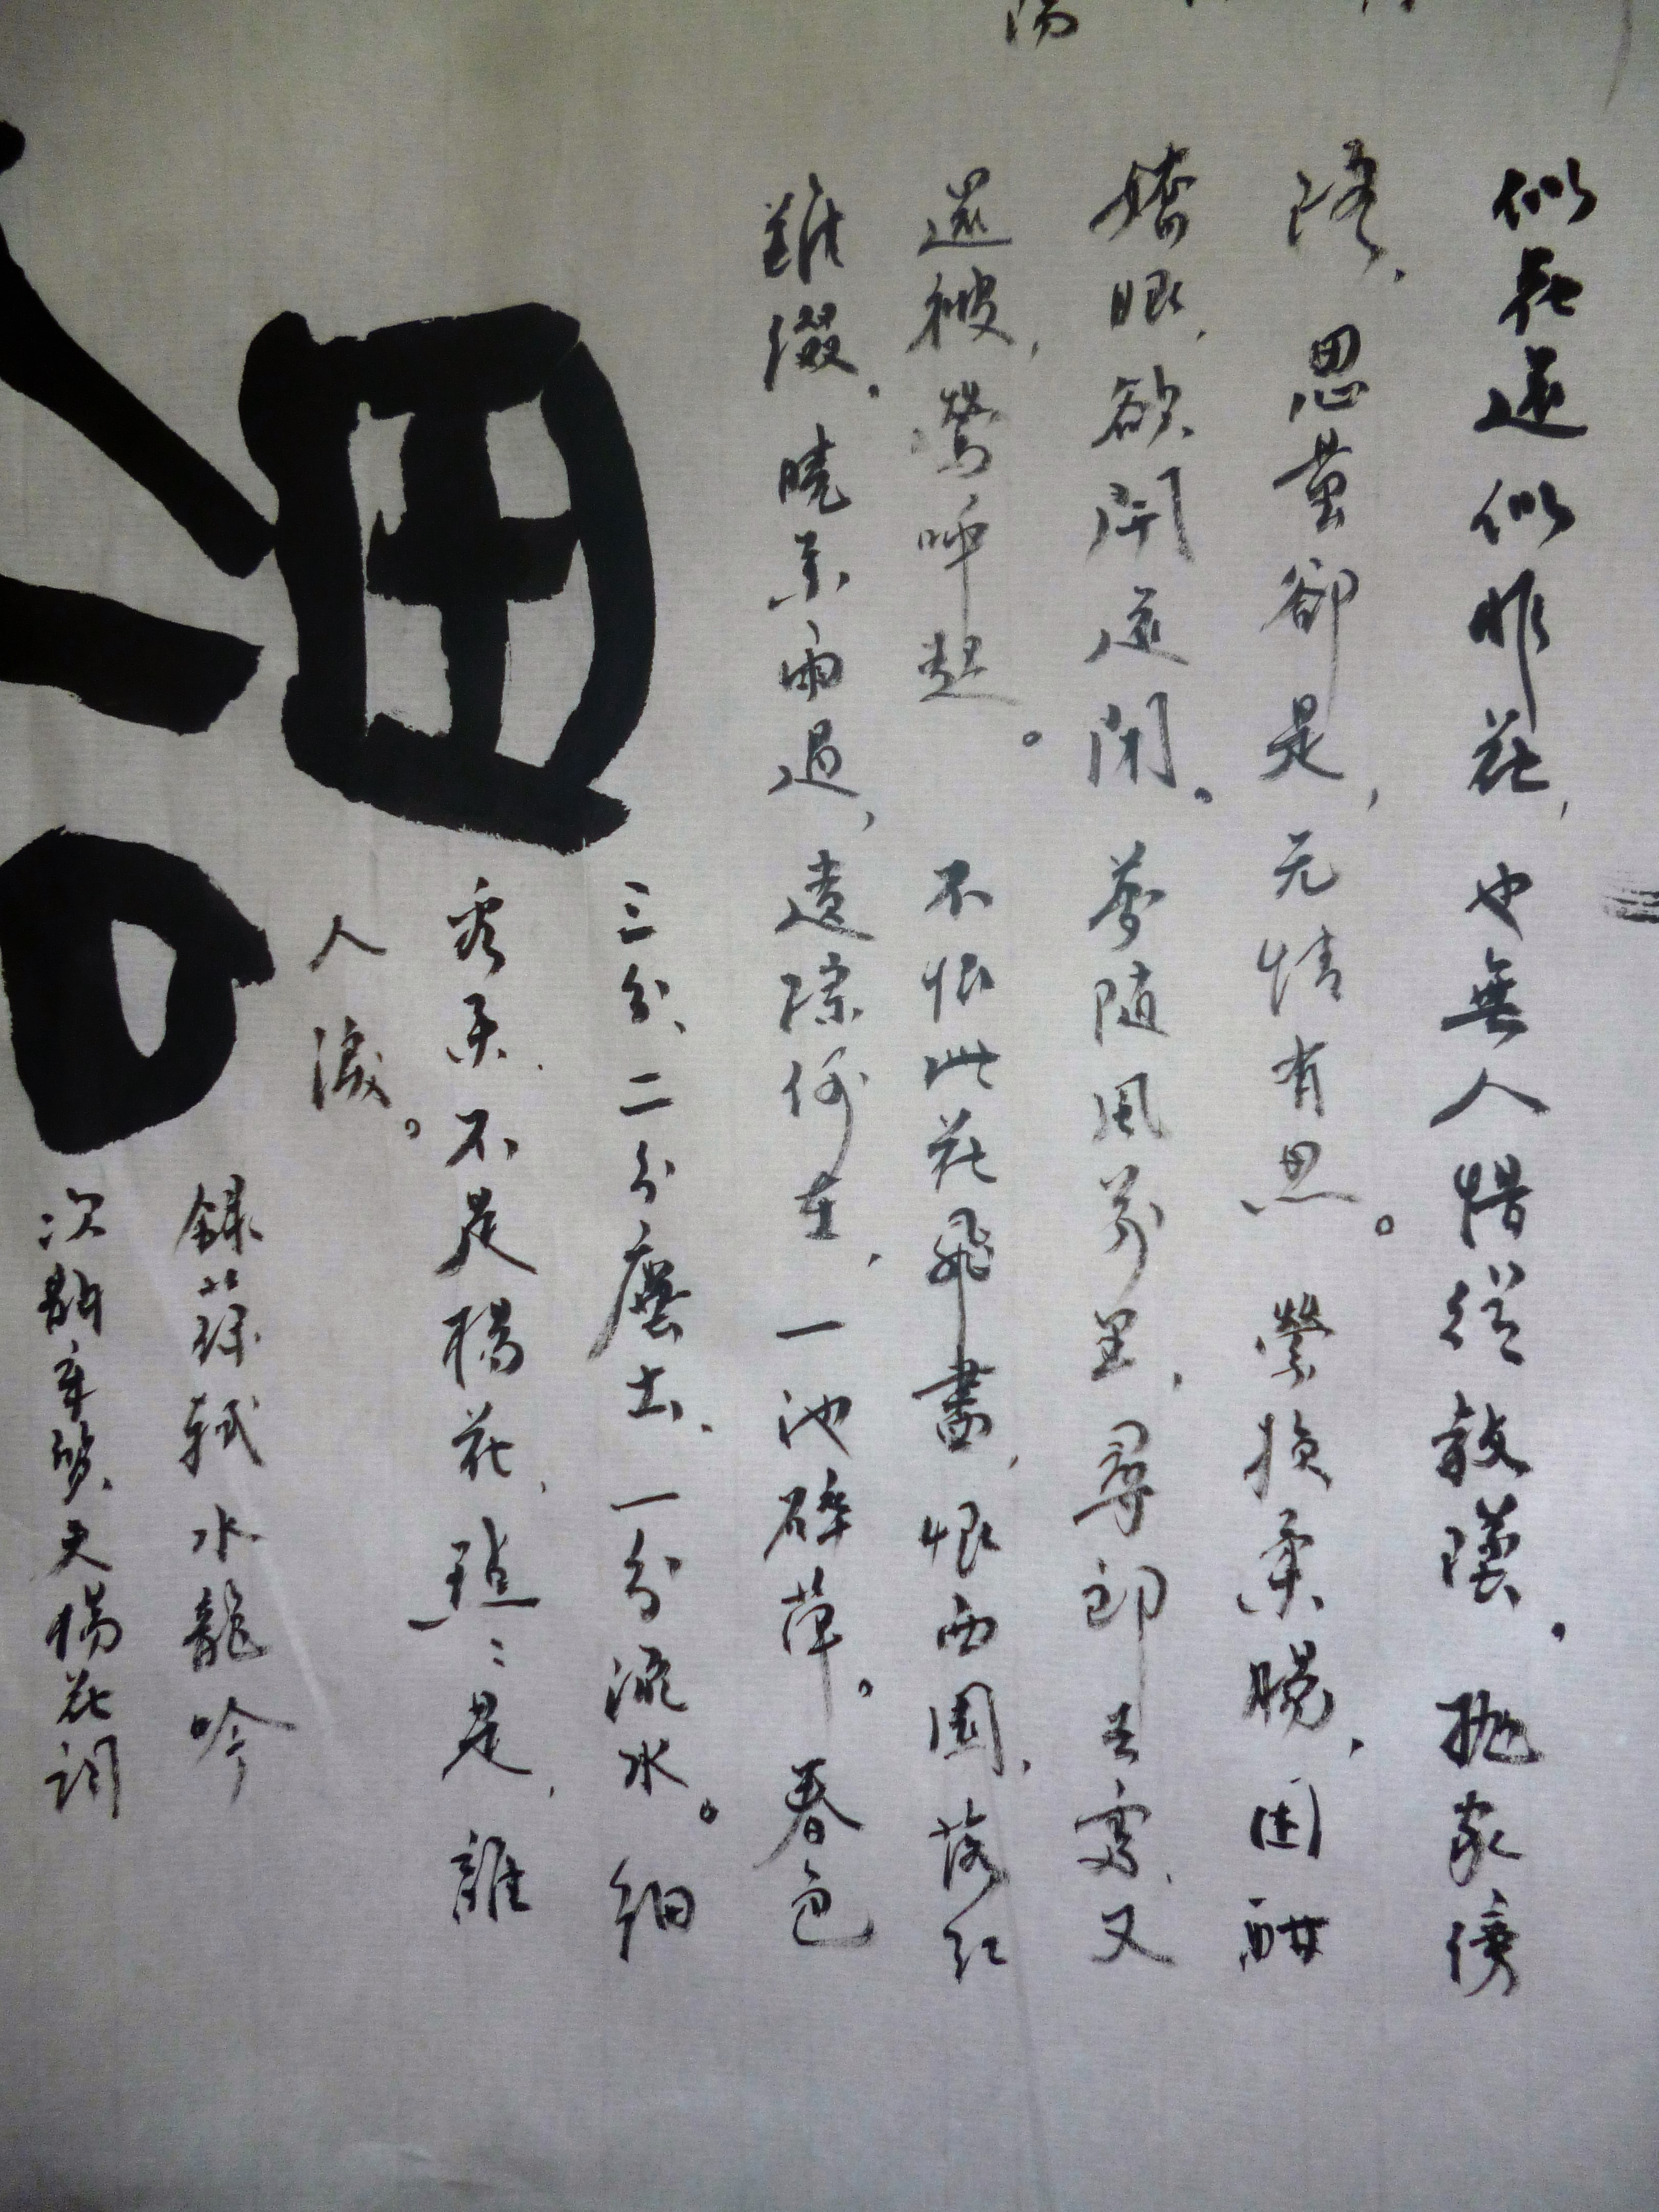 似花還似非花，也無人惜從教墜。抛家傍
路，思量卻是，无情有思。縈損柔腸，困酣
嬌眼，欲開還閉。夢随風萬里，尋郎去處，又
還被，鶯呼起。不恨此花飛盡，恨西園，落紅
難綴。曉來雨過，遺蹤何在，一池碎萍。春色
三分，二分塵土，一分流水。細
看來，不是楊花，點點是，離
人淚。
錄蘇軾水龍吟
次韻章質夫楊花詞